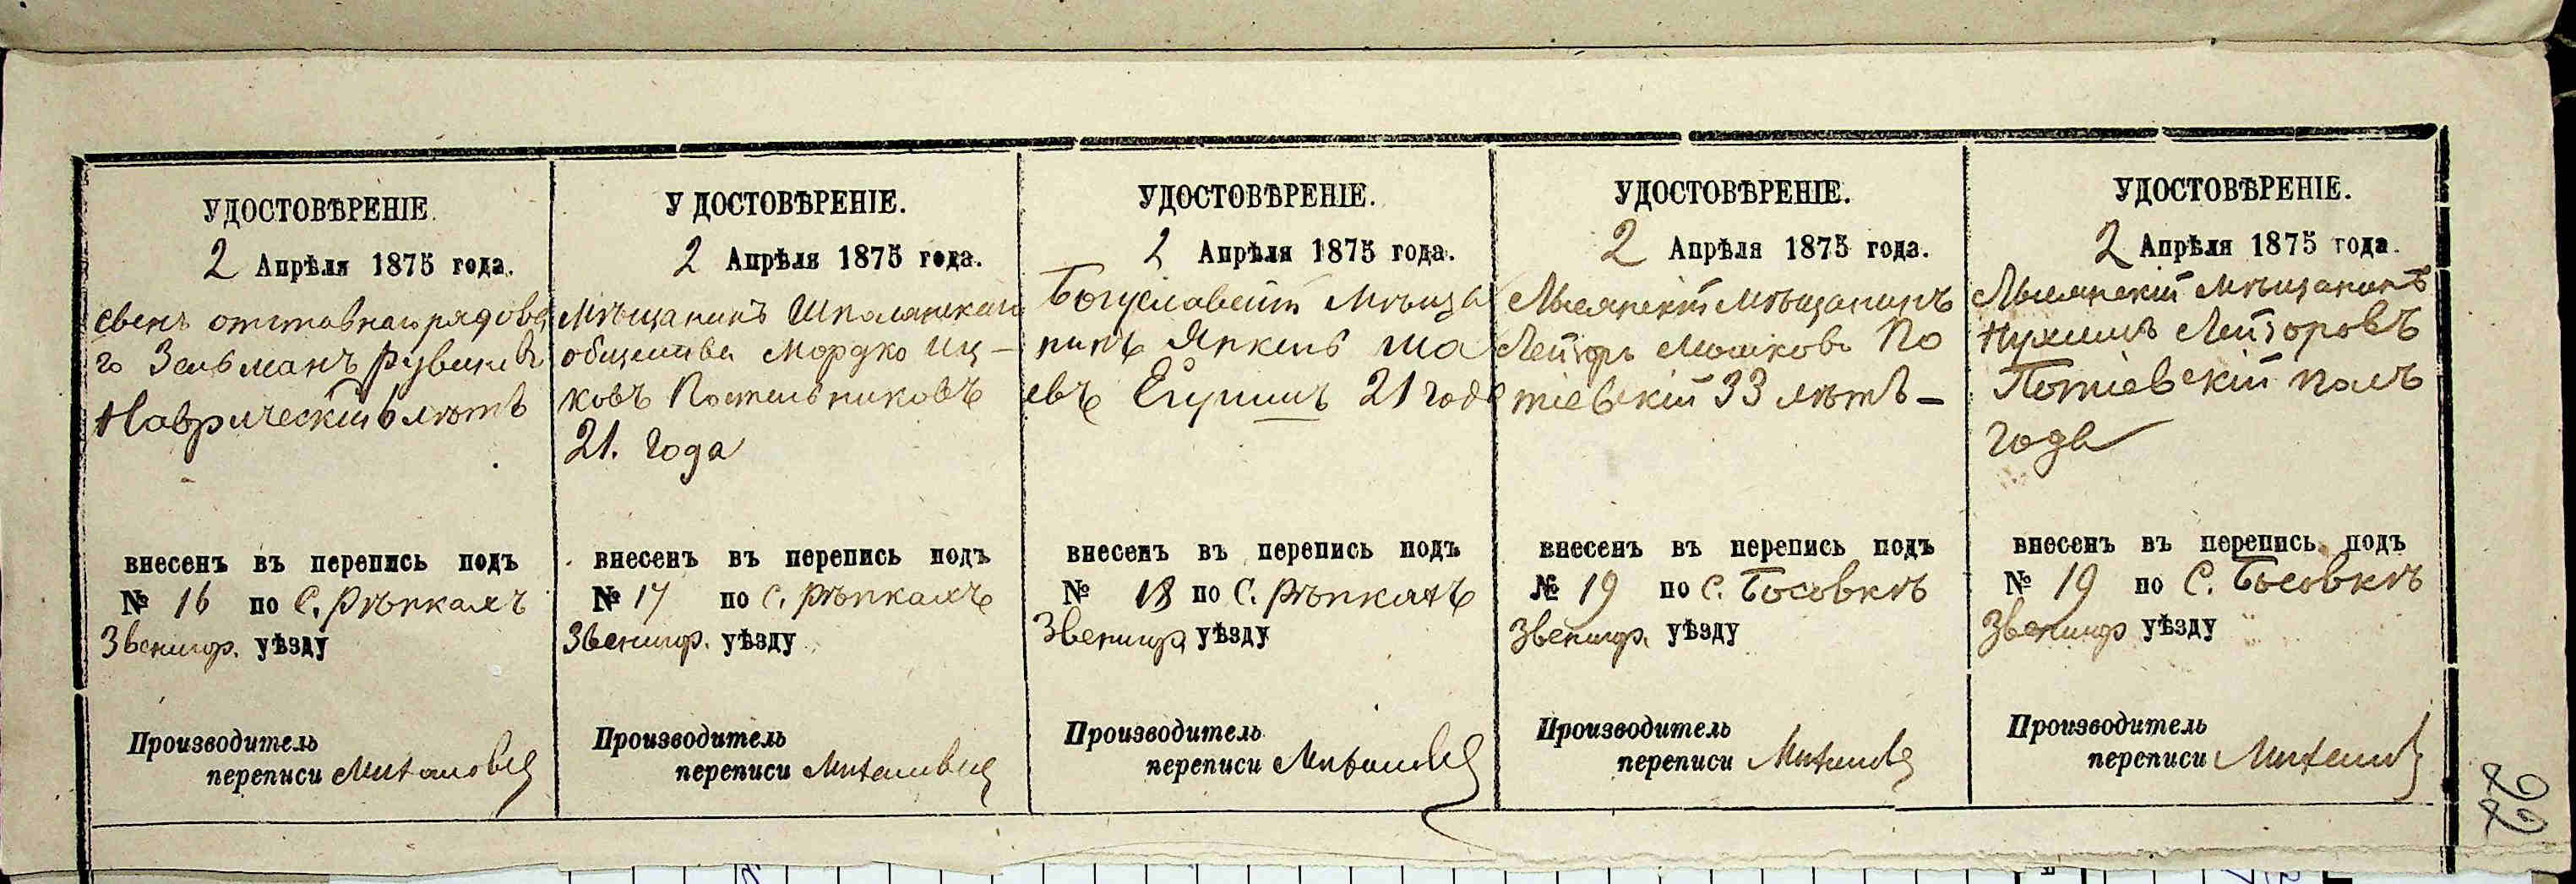 УДОСТОВѢРЕНІЕ.
2 Апрѣля 1875 года.
отставнаго рядова
го Зельманъ Рувиновъ
Наврическій 6 лѣтъ
внесенъ въ перепись подъ
№ 16 по С. Рѣпкахъ
Звенигор. уѣзду
Производитель
переписи
УДОСТОВѢРЕНІЕ.
2 Апрѣля 1875 года.
Мѣщанинъ Шполянскаго
общества Мордко Иц-
ковъ Постельниковъ
21. года
внесенъ въ перепись подъ
№ 17 по С. Рѣпкахъ
Звенигор. уѣзду
Производитель
переписи
УДОСТОВѢРЕНІЕ.
2 Апрѣля 1875 года.
Богуславскій Мѣща
нинъ Янкель
евъ 21 года
внесенъ въ перепись подъ
№ 18 по С. Рѣпкахъ
Звенигор уѣзду
Производитель
переписи
УДОСТОВѢРЕНІЕ.
2 Апрѣля 1875 года.
Лысянскій мѣщанинъ
Лейзоръ Мошковъ По
тіевскій 33 лѣтъ –
внесенъ въ перепись подъ
№ 19 по С. Босовкѣ
Звенигор. уѣзду
Производитель
переписи
УДОСТОВѢРЕНІЕ.
2 Апрѣля 1875 года.
Лысянскій мѣщанинъ
Нухимъ Лейзоровъ
Потіевскій полъ
года
внесенъ въ перепись подъ
№ 19 по С. Босовкѣ
Звенигор уѣзду
Производитель
переписи
22